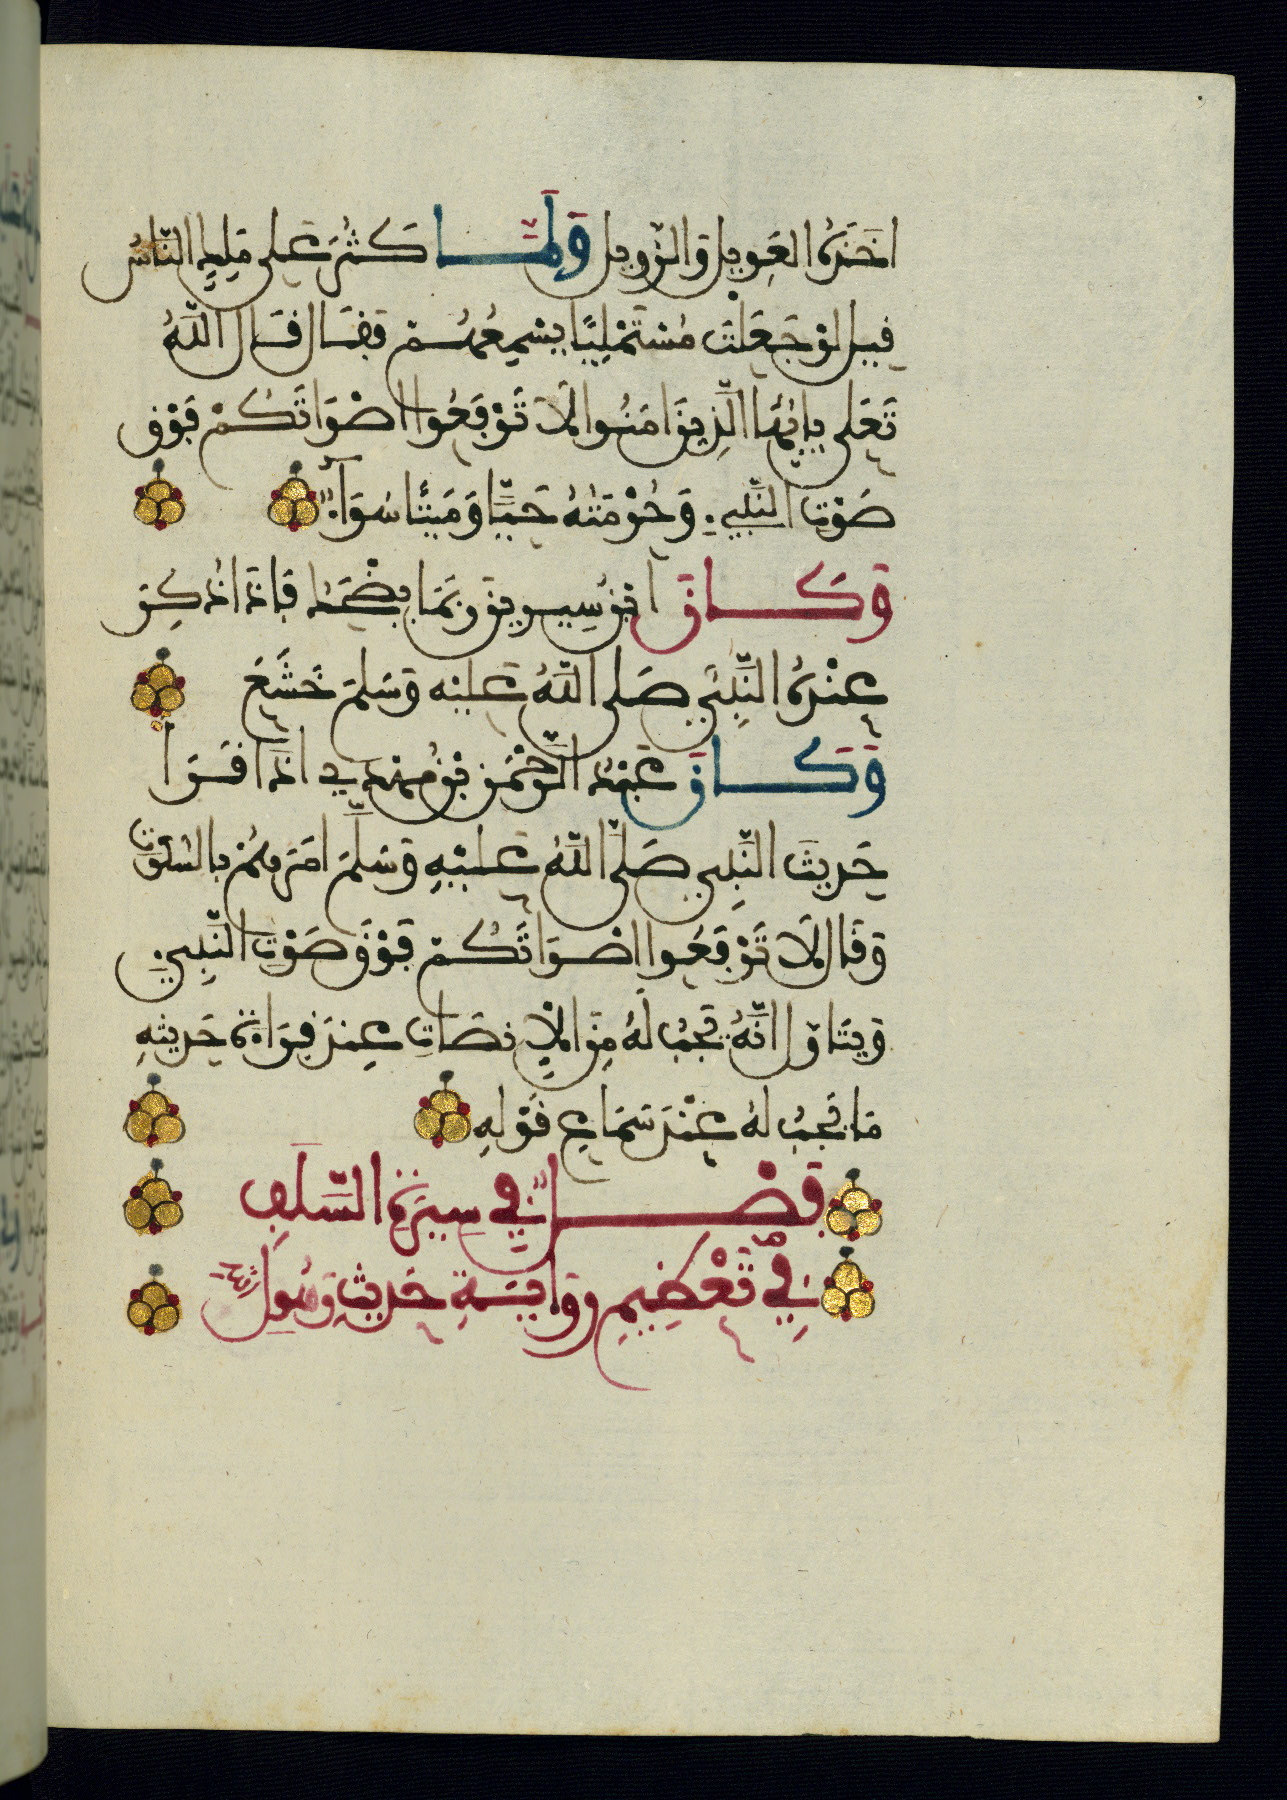 اَخَذَهُ العَوِيل وَالزَّوِيل وَلَمَّا كَثُرَ عَلى مَلِكٍ النَّاسُ
قِيل لوْ جَعَلْتَ مُسْتَمْلِيًا يُسْمِعُهُمْ فَقَال قَال اللَّهُ
تَعَلى يَاأَيُّهَا الَّذِينَ ءَامَنُوا لَا تَرْفَعُوا اصْوَاتَكُمْ فَوْقَ
صَوْتِ النَّبِيِّ وَحُرْمَتُهُ حَيًّا وَمَيِّتًا سَوَآءٌ
وَكَانَ ابْنُ سِيرِينَ رُبَمَا يَضْحَكُ فَإِذَا ذُكِرَ
عِنْدَهُ النَّبِيُّ صَلى اللَّهُ عَليْهِ وَسَلمَ خَشَعَ
وَكَانَ عَبْدُ الرَّحْمَنِ بْنُ مَهْدِي اذَا قَرَأَ
حَدِيثَ النَّبِيِّ صَلَّى اللَّهُ عَلَيْهِ وَسَلَّمَ امَرَهُمْ بِالسُّكُوتِ
وَقَال لَا تَرْفَعُوا اصْوَاتَكُمْ فَوْقَ صَوْتِ النَّبِيِّ
وَيَتَأَوَّل انَّهُ يَجِبُ لَهُ مِنَ الْإِنصَاتِ عِنْدَ قِرَاءَةِ حَدِيثِهِ
مَا يَجِبُ لهُ عِنْدَ سَمَاعِ قَوْلِهِ
فَصْل فِي سِيرَةِ السَّلَفِ
فِي تَعْظِيمِ رِوَايَةِ حَدِيثِ رَسُولِ